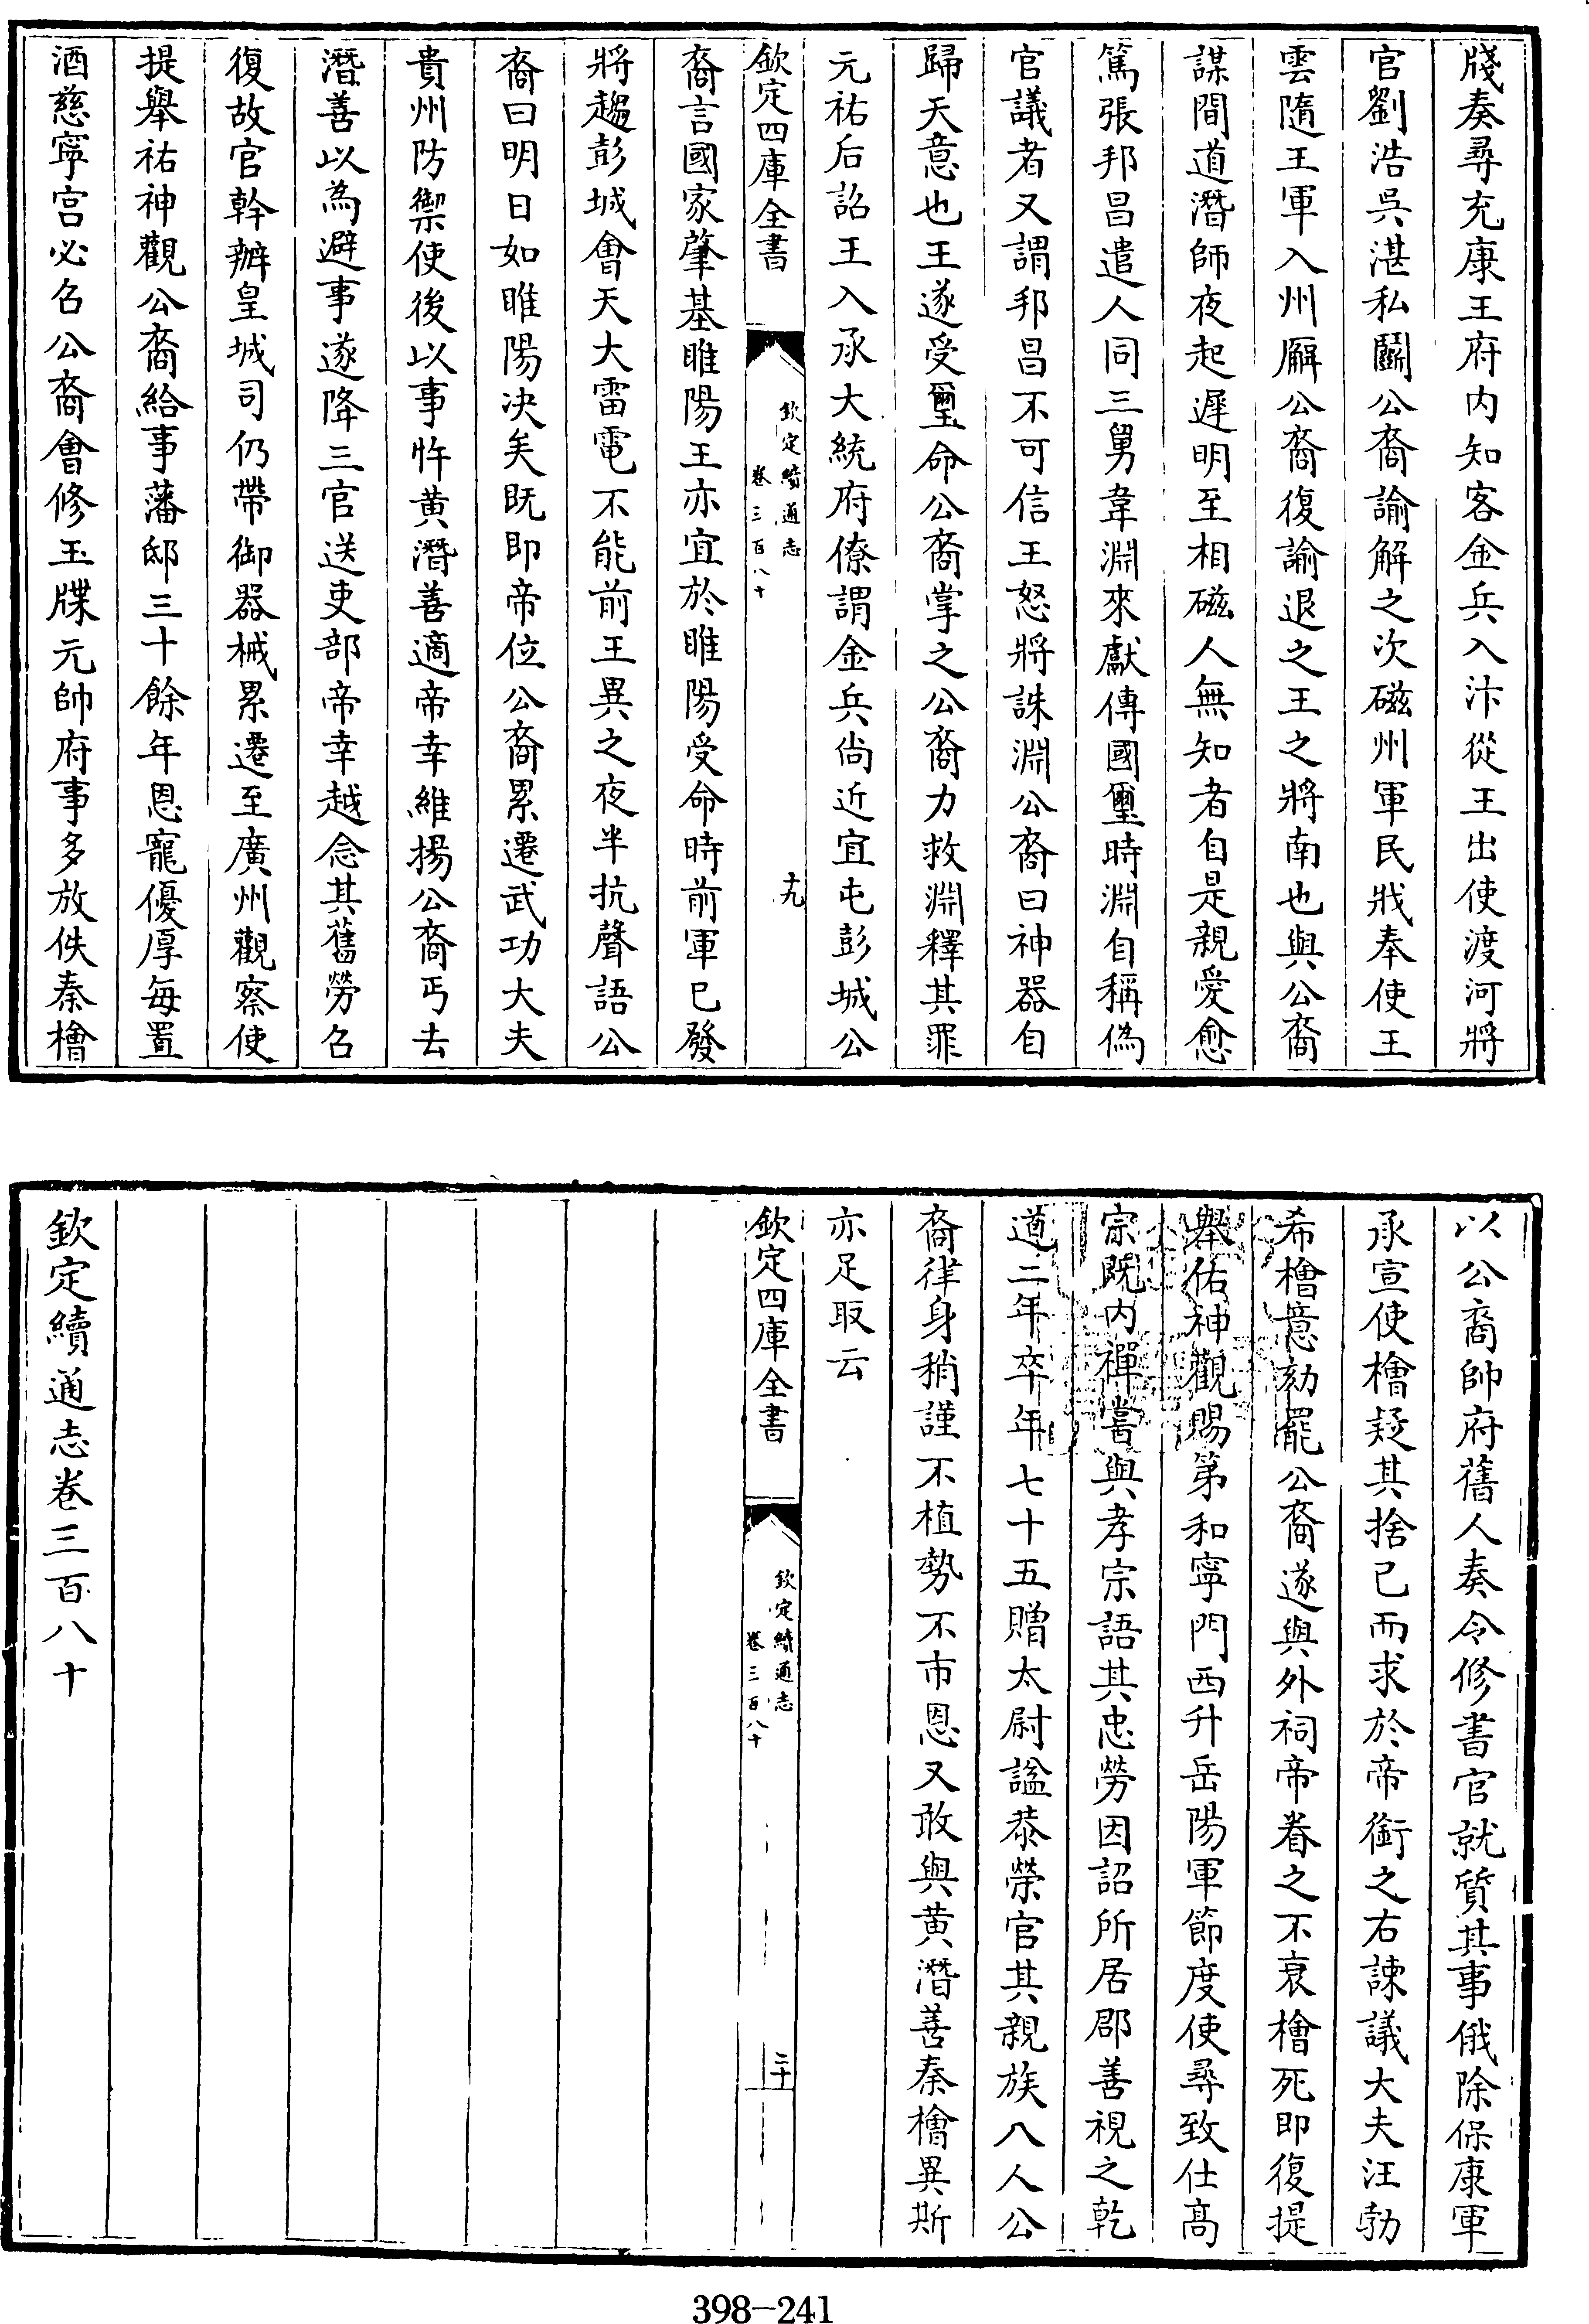 牋奏尋充康王府内知客金兵入汴從王出使渡河將
官劉浩吳湛私鬬公裔諭解之次磁州軍民戕奉使王
雲隨王軍入州廨公裔復諭退之王之將南也與公裔
謀間道潛師夜起遲明至相磁人無知者自是親愛愈
篤張邦昌遣人同三舅韋淵來獻傳國璽時淵自稱僞
官議者又謂邦昌不可信王怒將誅淵公裔曰神器自
歸天意也王遂受璽命公裔掌之公裔力救淵釋其罪
元祐后詔王入承大統府僚謂金兵尚近宜屯彭城公
欽定四庫全書
欽定續通志
卷三百八十
十九
裔言國家肇基睢陽王亦宜於睢陽受命時前軍已發
將趨彭城會天大雷電不能前王異之夜半抗聲語公
裔曰明日如睢陽决矣既即帝位公裔累遷武功大夫
貴州防禦使後以事忤黄潛善適帝幸維揚公裔丐去
潛善以為避事遂降三官送吏部帝幸越念其舊勞召
復故官幹辦皇城司仍帶御器械累遷至廣州觀察使
提舉祐神觀公裔給事藩邸三十餘年恩寵優厚每置
酒慈寧宫必召公裔會修玉牒元帥府事多放佚秦檜
以公裔帥府舊人奏令修書官就質其事俄除保康軍
承宣使檜疑其捨已而求於帝銜之右諫議大夫汪勃
希檜意劾罷公裔遂與外祠帝眷之不衰檜死即復提
舉佑神觀賜第和寧門西升岳陽軍節度使尋致仕髙
宗既内禪嘗與孝宗語其忠勞因詔所居郡善視之乾
道二年卒年七十五贈太尉諡恭榮官其親族八人公
裔律身稍謹不植勢不市恩又敢與黄潛善秦檜異斯
亦足取云
欽定四庫全書
欽定續通志
卷三百八十
二十
欽定續通志卷三百八十
398-241